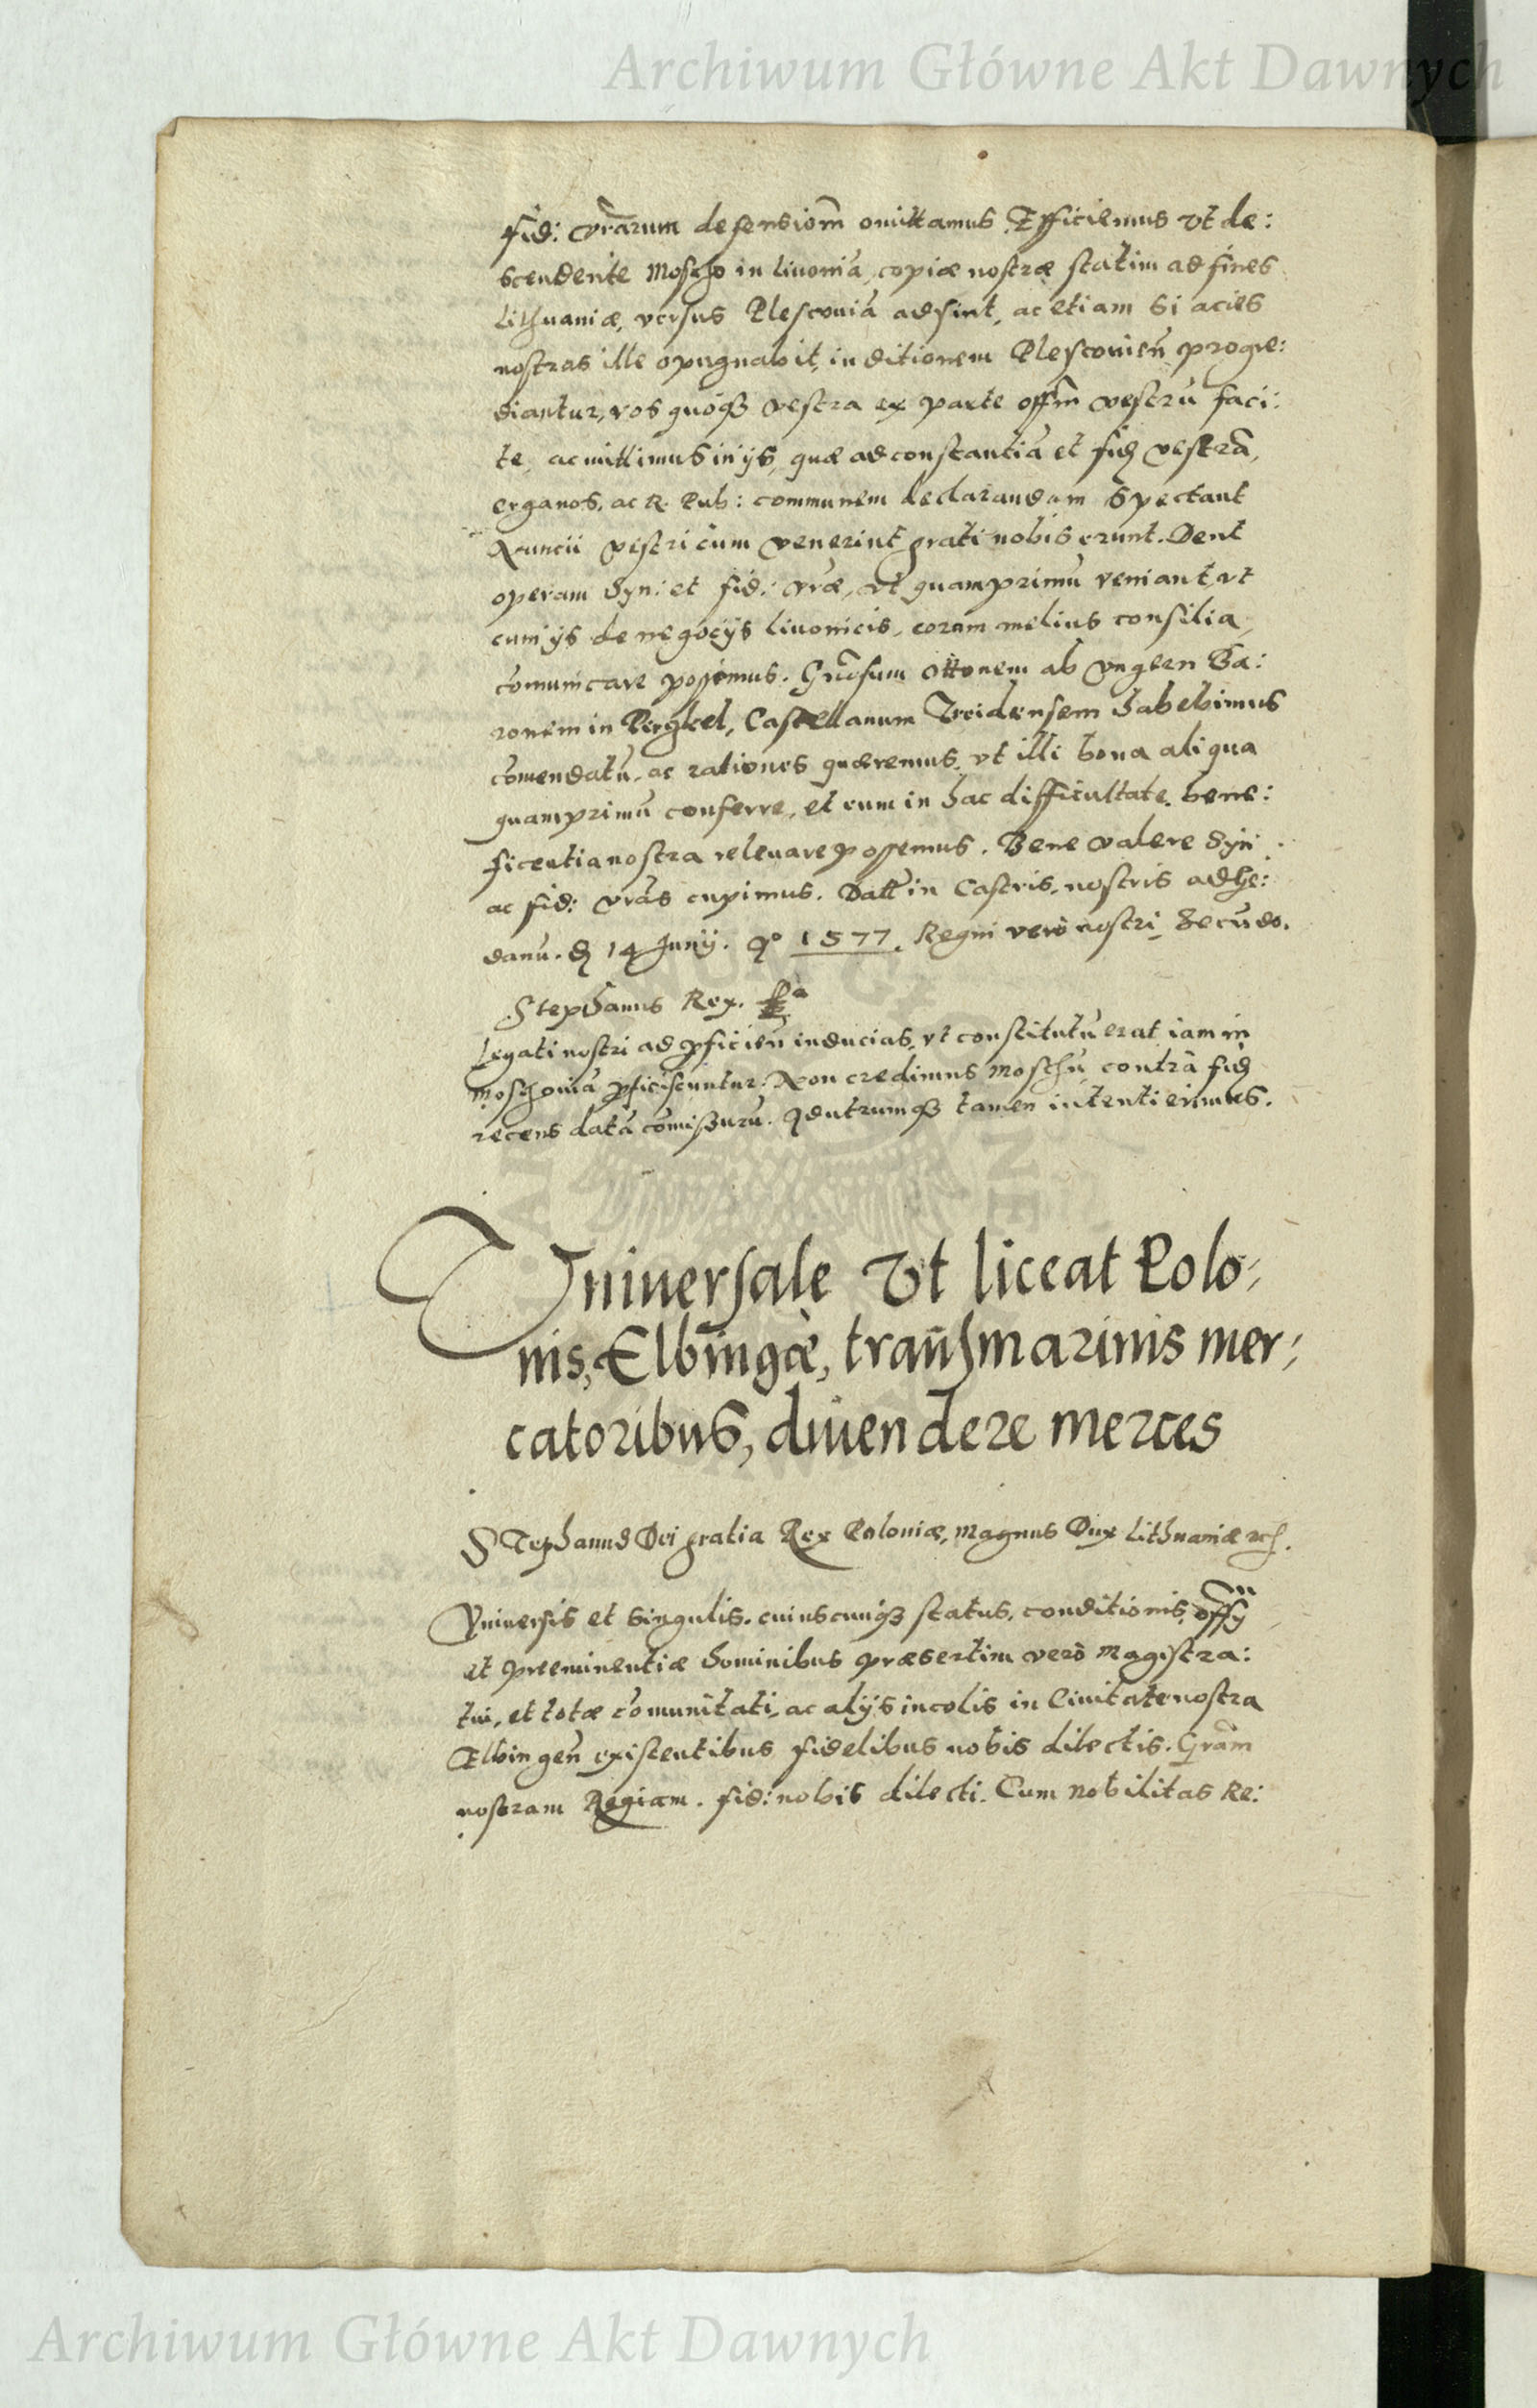 Archiwum Główne Akt Dawnych
fid: vr̃arum defensiom̃ omittamus. Efficiemus vt de:
scendente Moscho in Liuoniã, copiæ nostræ statim ad fines
Lithuaniæ, versus Plescouiã adsint, ac etiam si acies
nostras ille opugnabit, in ditionem Plescouieñ progre:
diantur, vos quoqꝫ vestra ex parte offm̃ vestrũ faci:
te, ac mittimus in ijs, quæ ad constantiã et fidȩ vestrã,
erga nos, ac R. Pub: communem declarandam spectant
Nuncii vestri cum venerint grati nobis erunt. Dent
operam Syn: et fid: vræ, vt quamprimũ veniant, vt
cum ijs de negocijs liuonicis, coram melius consilia,
comunicare possimus. Gñosum Ottonem ab Vngern Ba:
ronem in Pirgkel, Castellanum Treidensem habebimus
comendatũ, ac rationes quæremus, vt illi bona aliqua
quamprimũ conferre, et eum in hac difficultate, bene:
ficentia nostra releuare possemus. Bene valere Syñ
ac fid: vrãs cupimus. Datt̃ in Castris nostris ad he:
danũ. D 14 Junij. Aº 1577. Regni verò nostri Secũdo.
Stephanus Rex.
Legati nostri ad pficieñ inducias, vt constitutũ erat iam in
Moschouiã pficiscuntur. Non credimus Moschũ, contrà fidȩ
recens datã comissurũ. Ad utrumqꝫ tamen intenti erimus.
Vniuersale Vt liceat Polo:
nis, Elbingæ, transmarinis mer:
catoribus, diuendere merces
Stephanus Dei gratia Rex Poloniæ, Magnus Dux Lithuaniæ etc.
Vniuersis et singulis, cuiuscunqꝫ status, conditionis, offȳ
et preeminentiæ hominibus præsertim verò Magistra:
tui, et totæ comunitati, ac alijs incolis in Ciuitate nostra
Elbingeñ existentibus fidelibus nobis dilectis. Grãm
nostram Regiam. fid: nobis dilecti. Cum nobilitas Re:
Archiwum Główne Akt Dawnych